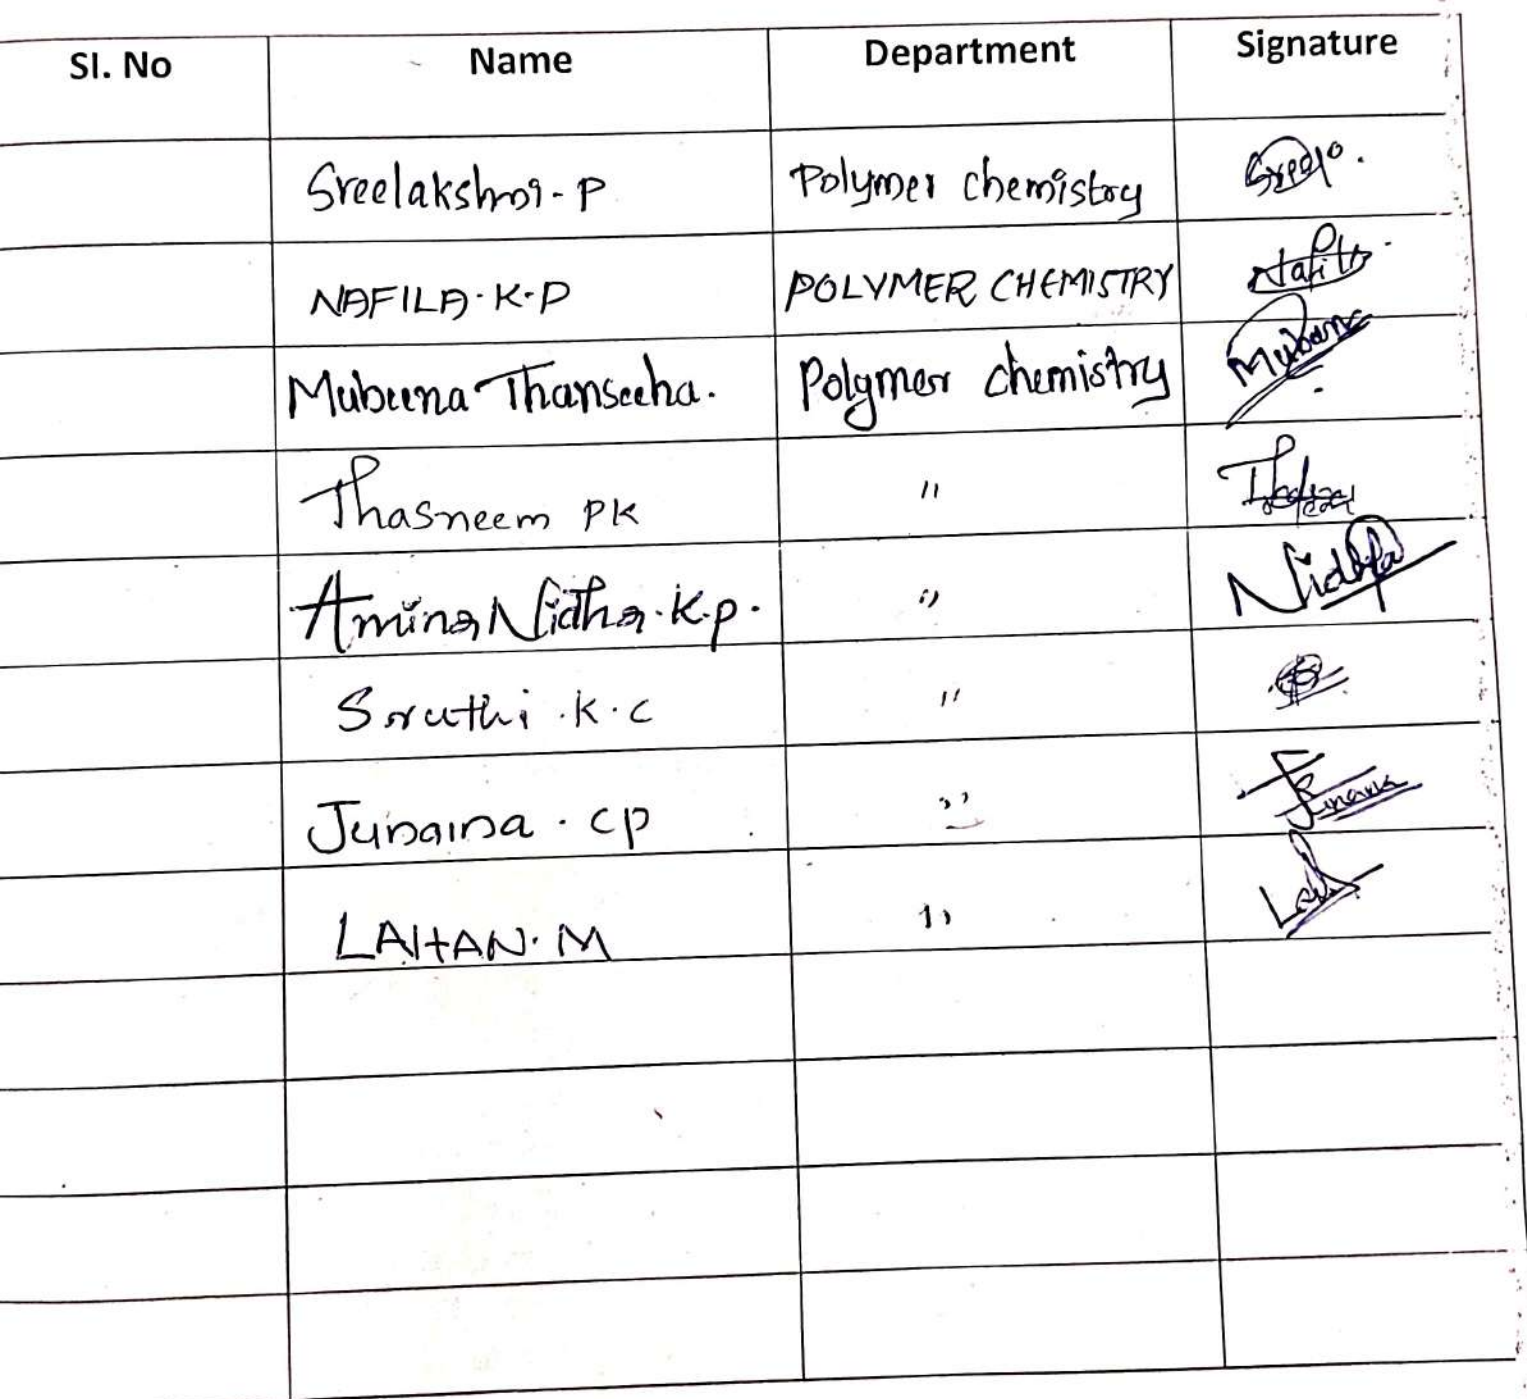 Sl. No Name Department Signature
Sreelakshmi - P Polymer chemistry Sreela
NAFILA. K. P POLYMER CHEMISTRY Nafila
Mubeena Thanseeha. Polymer chemistry Mubeena
Thasneem PK "
Amina Nidha. K.p. " Nidha
Sruthi . K . C "
Junaina . CP "
LAHAN. M "